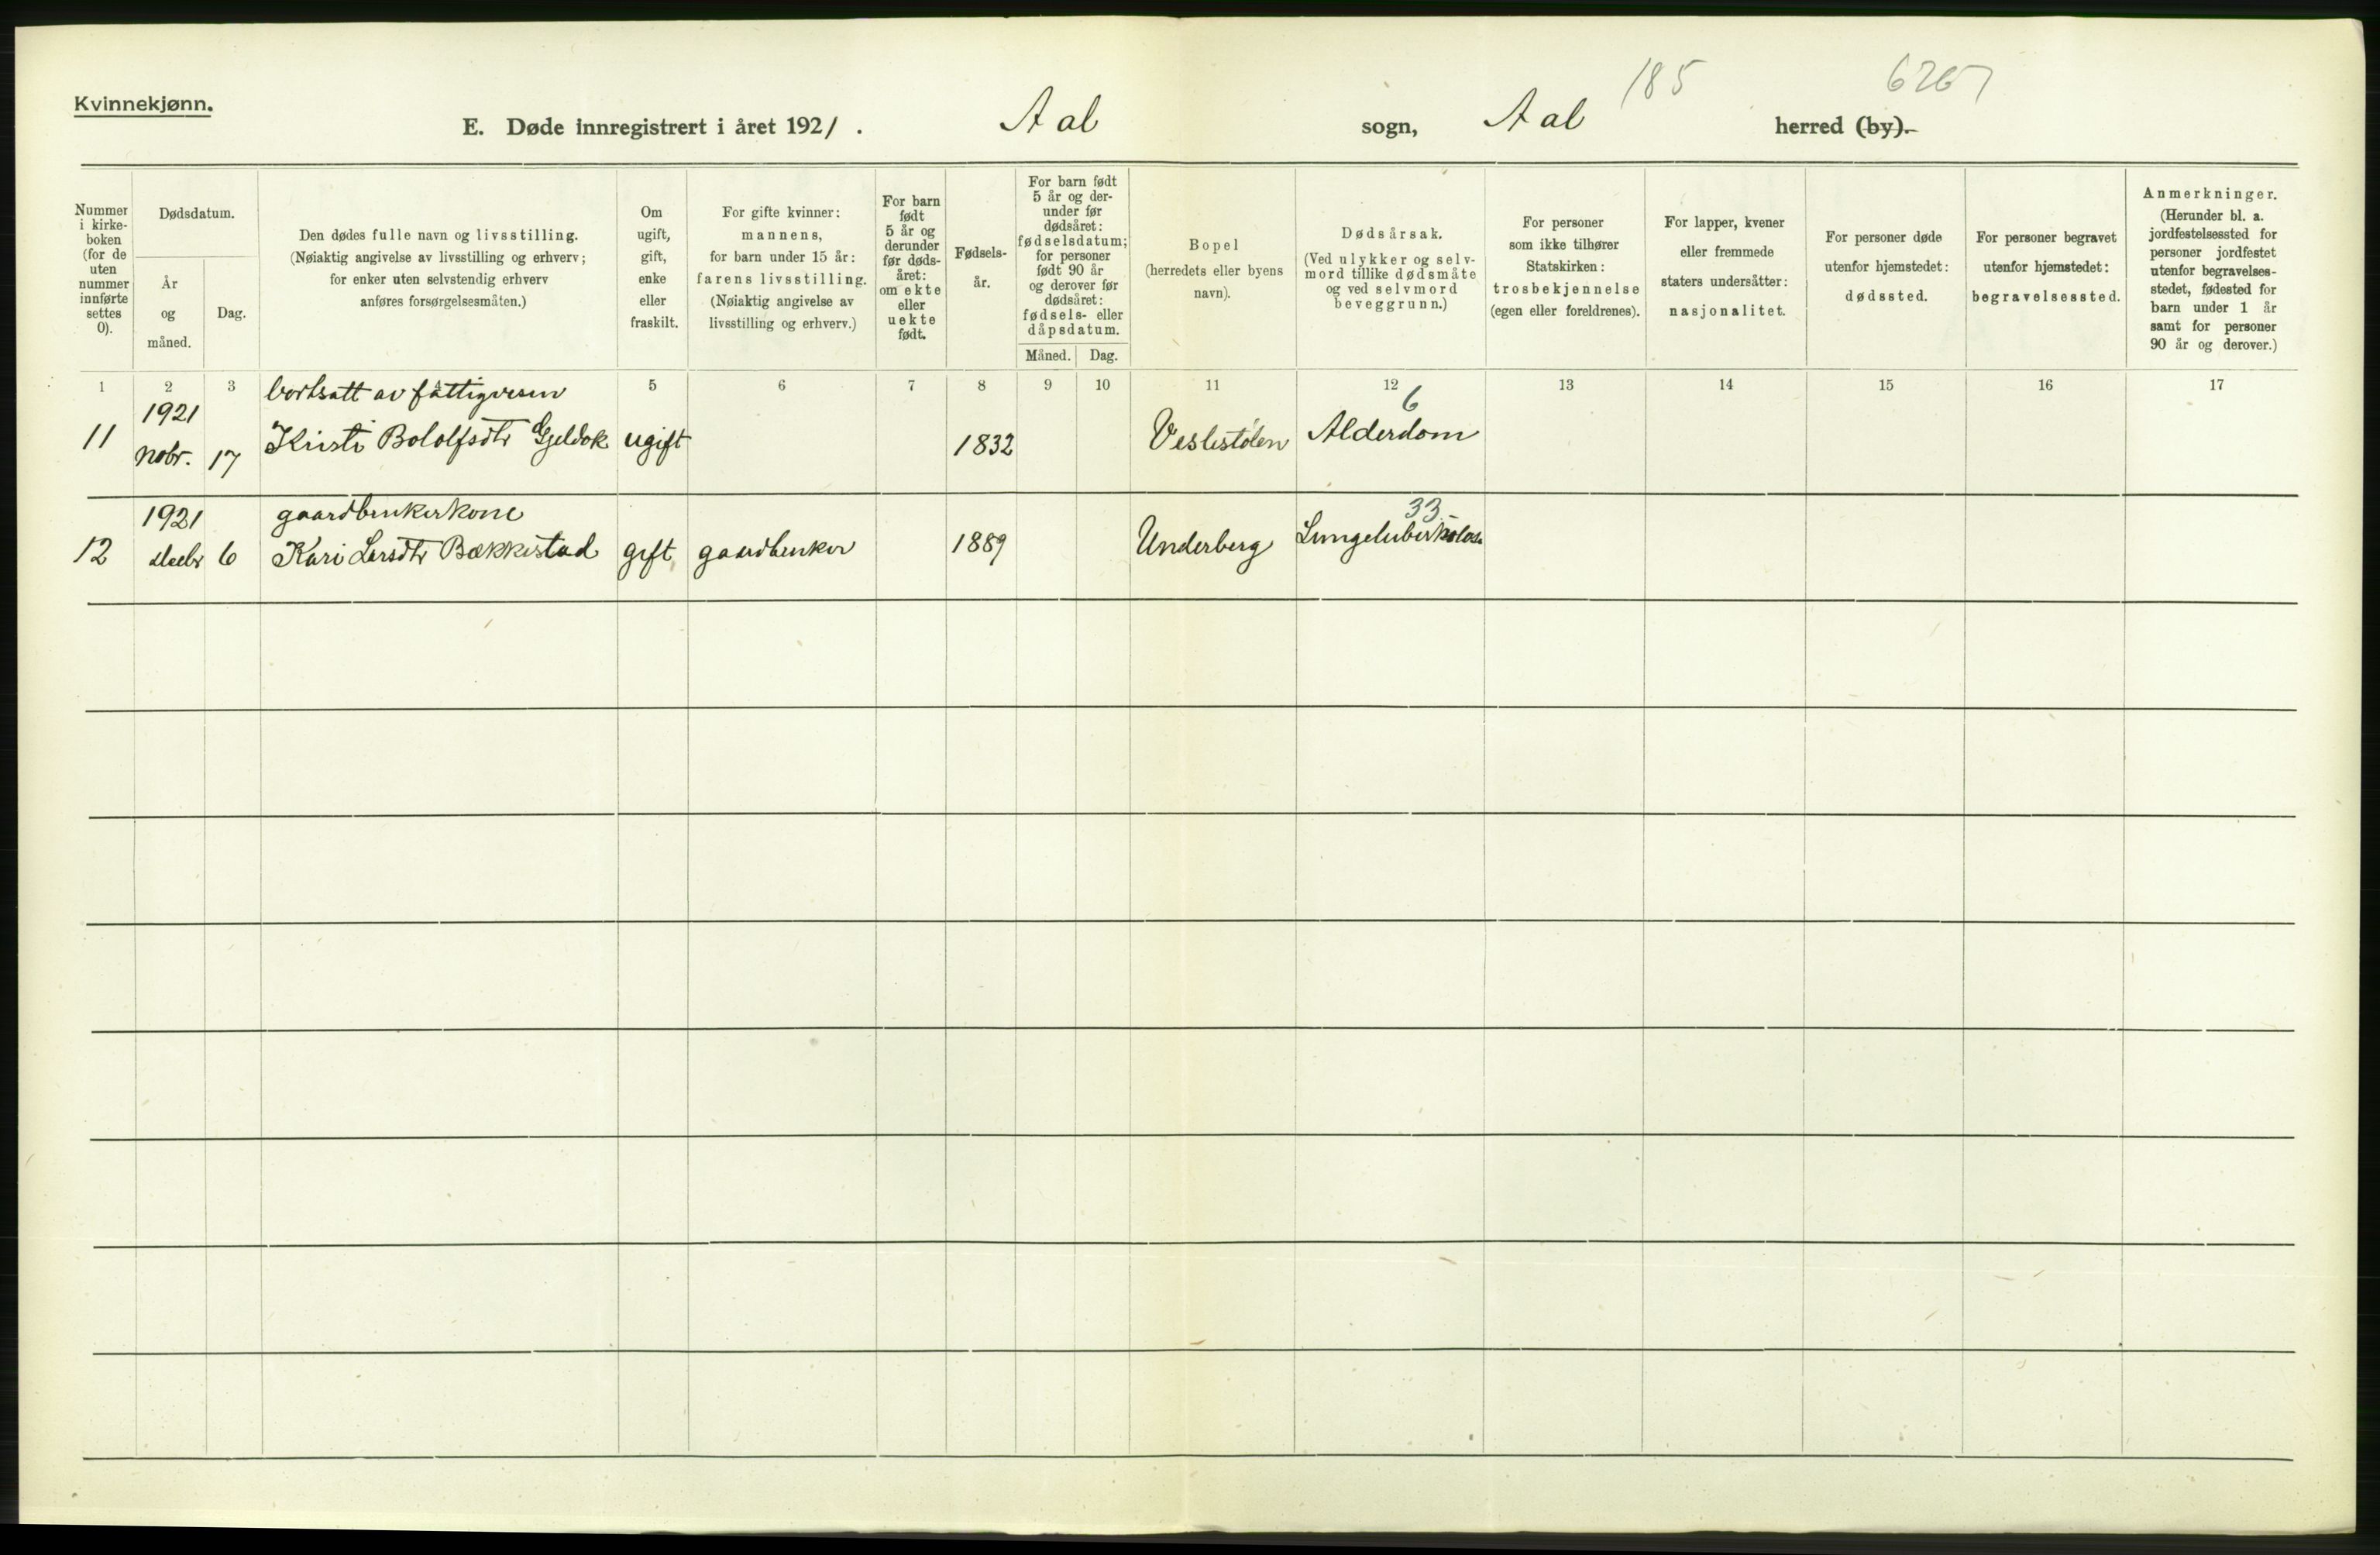 185 6267
Kvinnekjønn.
E. Døde innregistrert i året 1921. Aal sogn, Aal herred (by).
Nummer i kirke-boken (for de uten nummer innførte settes 0).
Dødsdatum.
År og måned.
Dag.
Den dødes fulle navn og livsstilling.
(Nøiaktig angivelse av livsstilling og erhverv;
for enker uten selvstendig erhverv
anføres forsørgelsesmåten.)
Om
ugift,
gift,
enke
eller
fraskilt.
For gifte kvinner:
mannens,
for barn under 15 år:
farens livsstilling.
(Nøiaktig angivelse av
livsstilling og erhverv.)
For barn
født
5 år og
derunder
før døds-
året:
om ekte
eller
uekte
født.
Fødsels-
år.
For barn født
5 år og der-
under før
dødsåret:
fødselsdatum;
for personer
født 90 år
og derover før
dødsåret:
fødsels- eller
dåpsdatum.
Måned. Dag.
Bopel
(herredets eller byens
navn).
Dødsårsak.
(Ved ulykker og selv-
mord tillike dødsmåte
og ved selvmord
beveggrunn.)
For personer
som ikke tilhører
Statskirken:
trosbekjennelse
(egen eller foreldrenes).
For lapper, kvener
eller fremmede
staters undersåtter:
nasjonalitet.
For personer døde
utenfor hjemstedet:
dødssted.
For personer begravet
utenfor hjemstedet:
begravelsessted.
Anmerkninger.
(Herunder bl. a.
jordfestelsessted for
personer jordfestet
utenfor begravelses-
stedet, fødested for
barn under 1 år
samt for personer
90 år og derover.)
1 2 3 5 6 7 8 9 10 11 12 13 14 15 16 17
1921 bortsatt av fattigvesen 6
11 Nobr. 17 Kristi Bololfsdtr Gjeldok ugift 1832 Veslestølen Alderdom
1921 gaardbrukerkone 33
12 decbr 6 Kari Larsdtr Bækkestad gift gaardbruker 1889 Underberg Lungetuberkolose